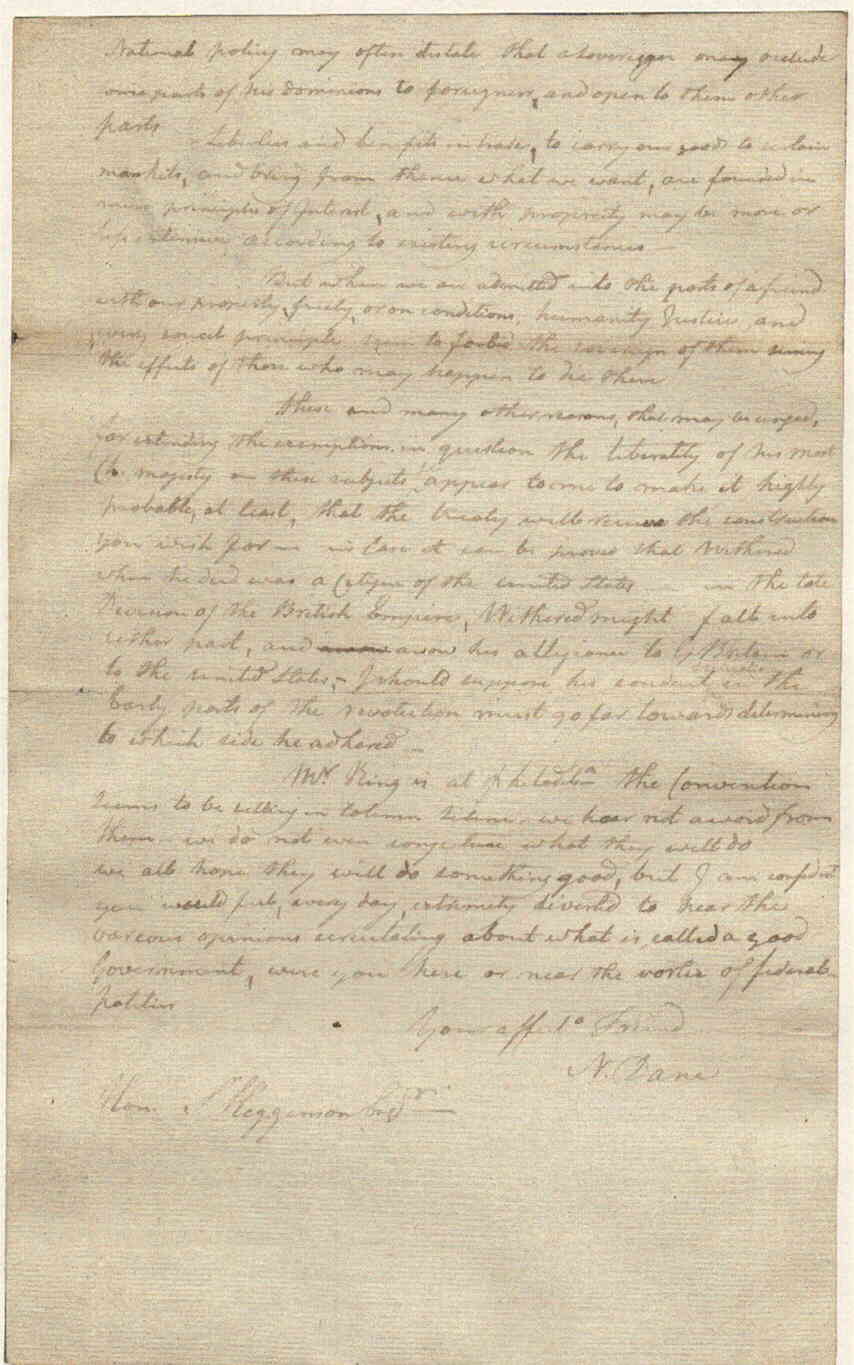 National policy may often dictate that a sovereign may exclude
some parts of his dominions to foreigners, and open to them other
parts
Liberties and benefits in trade, to carry our goods to certain
markets, and bring from thence what we want, are founded in
principles of Interest, and with propriety may be more or
less extensive according to existing circumstances —
But when we are admitted into the ports of a friend
with our property, freely, or on conditions, humanity Justice, and
every principle seem to forbid the sovereign of them seizing
the effects of those who may happen to die there
These and many other reasons, that may be urged,
for extending the exemptions in question the liberality of his most
Ch. majesty on these subjects, appear to me to make it highly
probable, at least, that the treaty will receive the construction
you wish for — in Case it can be proved that Withered
when he died was a Citizen of the united States — in the late
Division of the British Empire, Withered might fall into
either part, and avow his allegiance to G Britain or
to the united States, — I should suppose his conduct in the
Early parts of the revolution must go far towards determining
to which side he adhered —
Mr. King is at philadela. the Convention
seems to be setting in solemn silence — we hear not a word from
them — we do not even conjecture what they will do
we all hope they will do something good, but I am confident
you would feel, every day, extremely diverted to hear the
various opinions circulating about what is called a good
Government, were you here or near the vortex of federal
politics
Your affecto. Friend
N. Dane
Hon. S Higginson Esqr. —